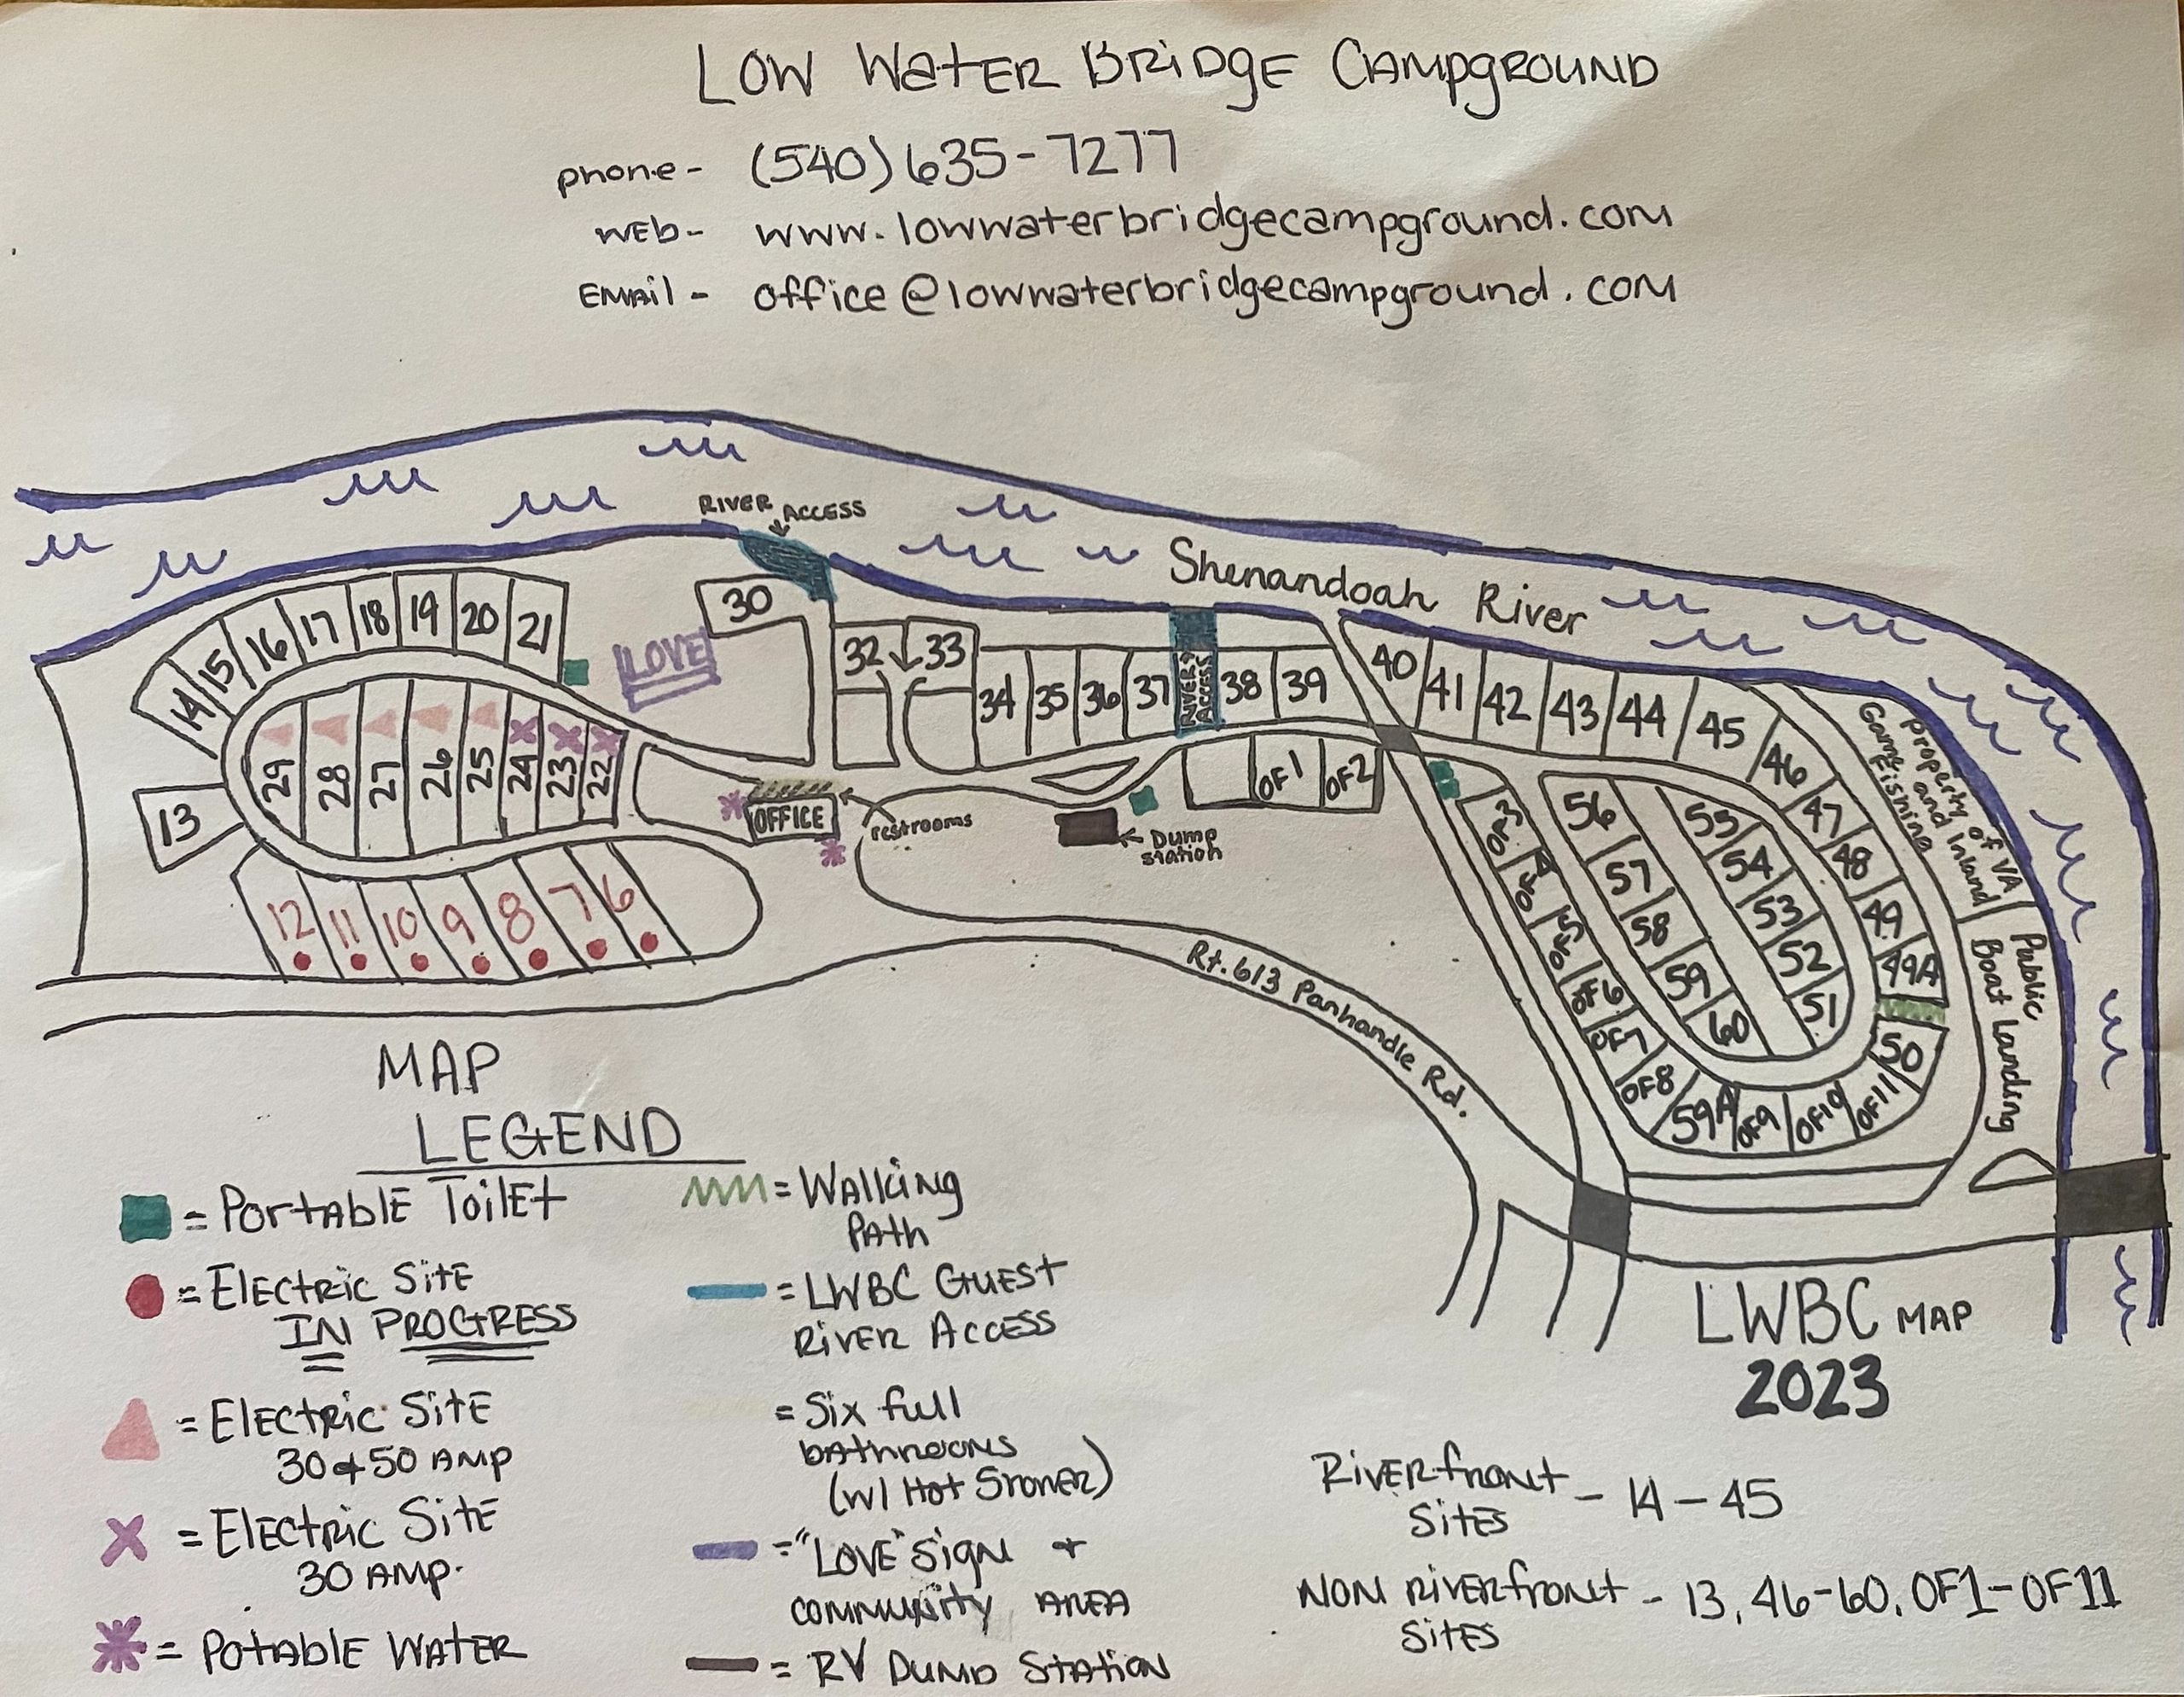 LOW WATER BRIDGE CAMPGROUND
phone- (540) 635-7277
WEb- www.lowwaterbridgecampground.com
EMAil- office@lowwaterbridgecampground.com
RIVER ACCESS
Shenandoah River
14 15 16 17 18 19 20 21
30
LOVE
32 33
34 35 36 37
RIVER ACCESS
38 39
40 41 42 43 44 45 46 47 48 49 49A 50
Property of VA
Game and Inland
Fishining
Public
Boat Landing
29 28 27 26 25 24 23 22
13
OFFICE
restrooms
OF1 OF2
Dump
station
12 11 10 9 8 7 6
OF3 OF4 OF5 OF6 OF7 OF8 59A OF9 OF10 OF11
56 57 58 59 60
55 54 53 52 51
Rt.613 Panhandle Rd.
MAP
LEGEND
= PORTABLE ToilEt
= ElEctRic SitE
IN PROGRESS
= ElEctRic SitE
30+50 AMP
= ElEctRic SitE
30 AMP.
= PotABLE WATER
= WAlking
PAth
= LWBC GUESt
RiVER ACCESS
= Six full
bAthrooms
(w/ Hot Shower)
= "LOVE" Sign +
community AREA
= RV Dump StAtion
LWBC MAP
2023
RiVERfront
SitES - 14-45
NON RiVERfront
SitES - 13, 46-60, OF1-OF11